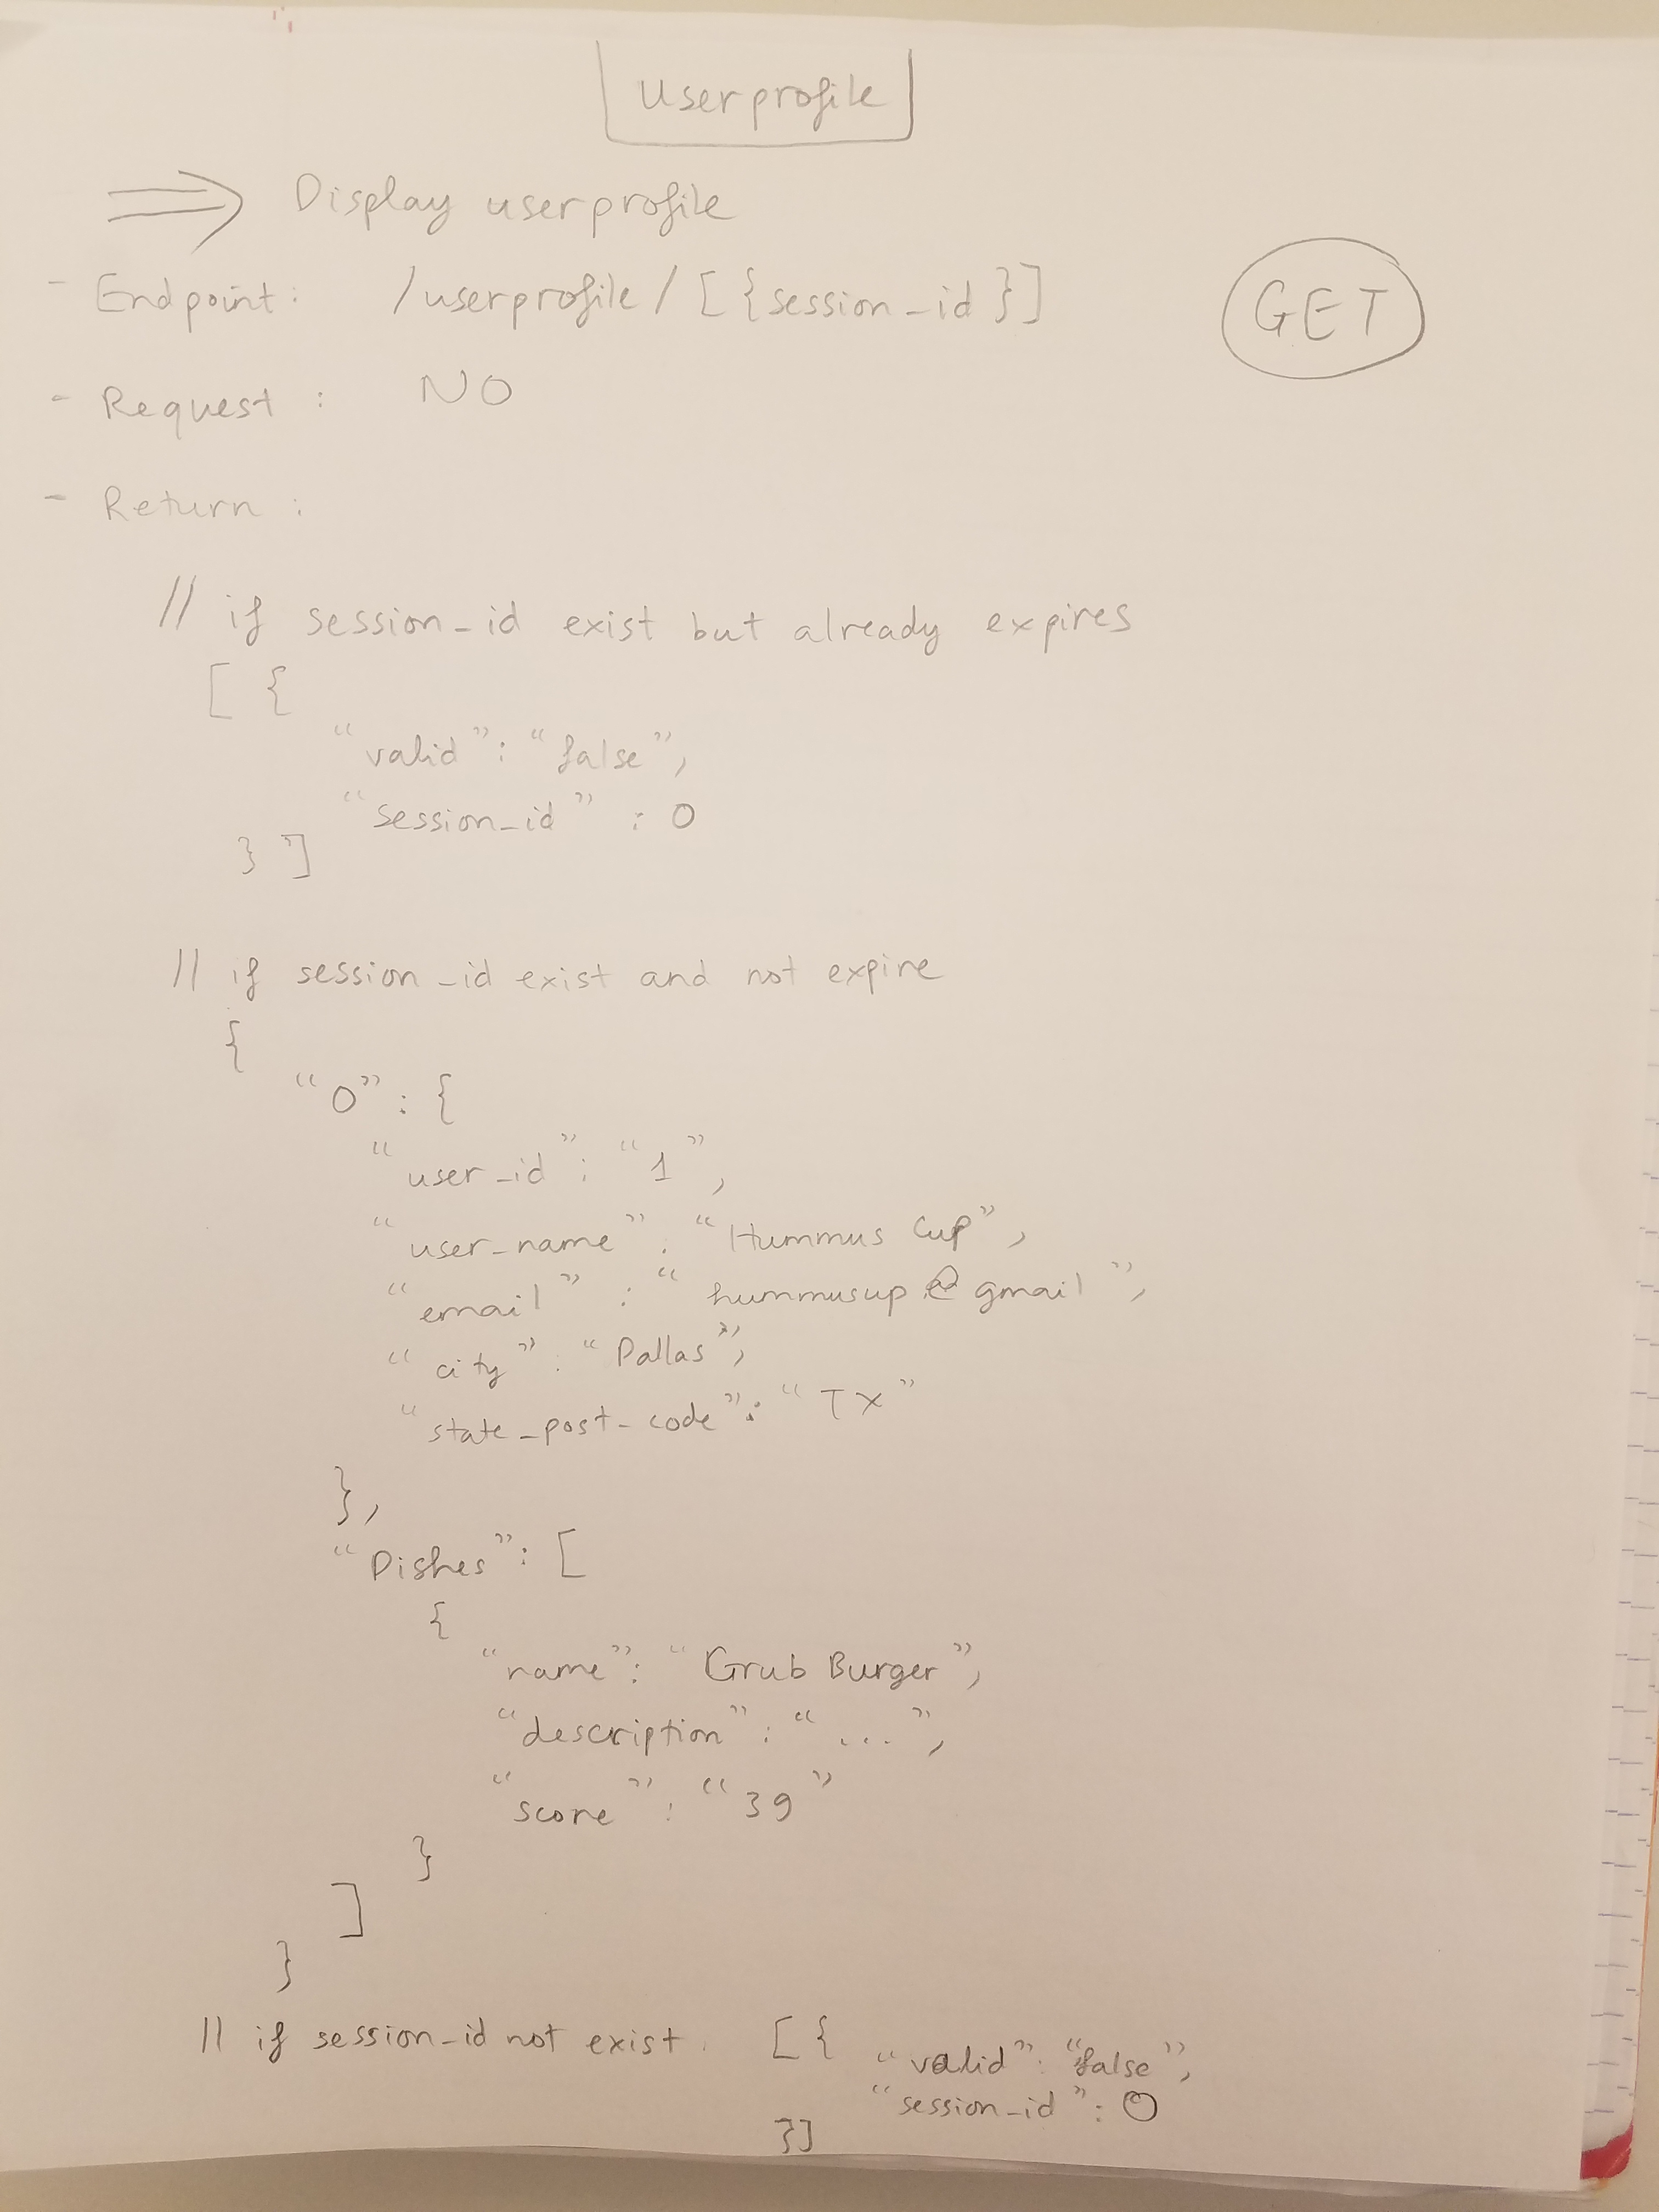 Userprofile
⇒ Display userprofile
- Endpoint: /userprofile/[{session_id}] GET
- Request: NO
- Return:
// if session_id exist but already expires
[{
"valid": "false",
"session_id": 0
}]
// if session_id exist and not expire
{
"0": {
"user_id": "1",
"user_name": "Hummus Cup",
"email": "hummusup@gmail",
"city": "Dallas",
"state_post_code": "TX"
},
"Dishes": [
{
"name": "Grub Burger",
"description": "...",
"score": "39"
}
]
}
// if session_id not exist. [{ "valid": "false",
"session_id": 0
}]